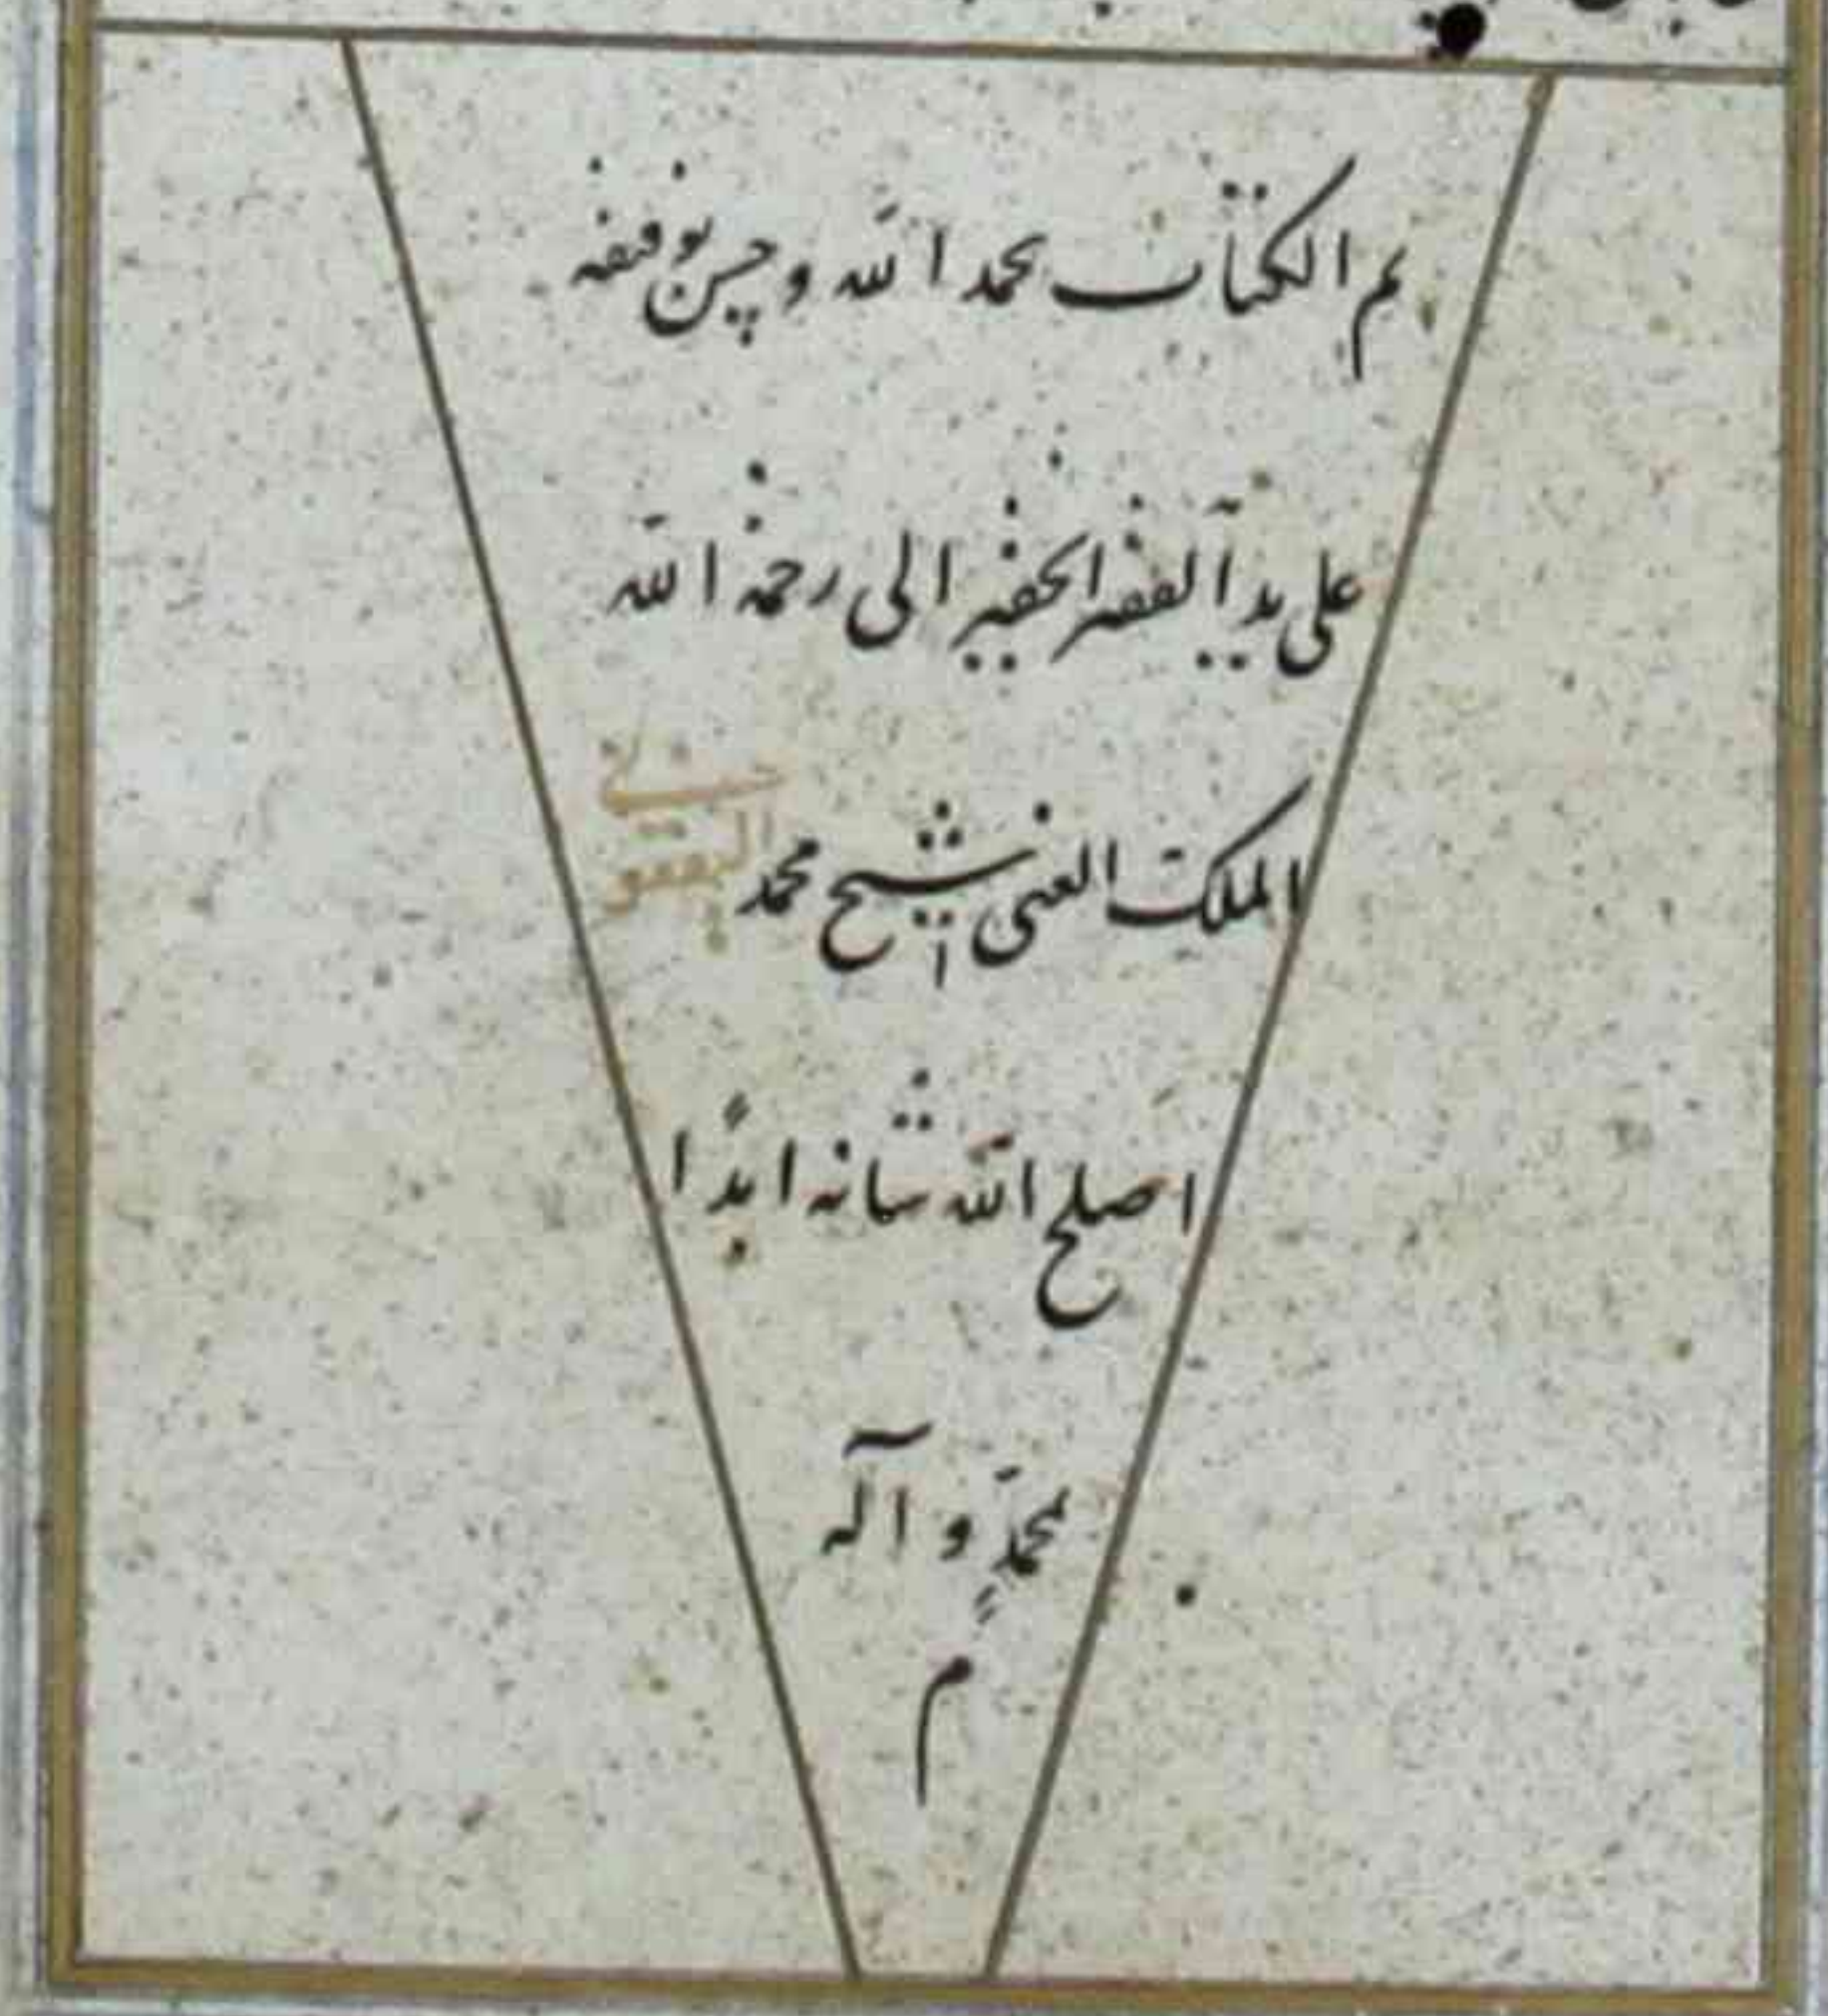 تم الكتاب بحمد الله وحسن توفيقه
على يد الفقير الحقير الى رحمة الله
الملك الغنى شيخ محمد
اصلح الله شانه ابدًا
بمحمدٍ و آله
م